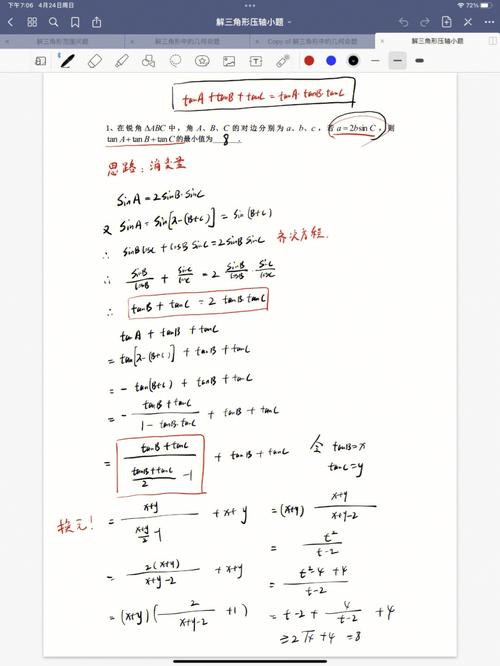 下午7:06 4月24日周日
72%
解三角形压轴小题
解三角形范围问题
解三角形中的几何命题
Copy of 解三角形中的几何命题
解三角形压轴小题
tanA+tanB+tanC=tanA·tanB·tanC
1、在锐角 ΔABC 中,角 A、B、C 的对边分别为 a、b、c,若 a=2b sin C,则
tan A+tan B+tan C 的最小值为 8 .
思路:消变量
sinA=2sinB·sinC
又 sinA=sin[π-(B+C)]=sin(B+C)
∴ sinBcosC+cosBsinC=2sinBsinC 齐次方程.
∴ sinB/cosB + sinC/cosC = 2 sinB/cosB · sinC/cosC
∴ tanB+tanC=2tanBtanC
tanA+tanB+tanC
=tan[π-(B+C)]+tanB+tanC
=-tan(B+C)+tanB+tanC
=- (tanB+tanC)/(1-tanB·tanC) + tanB+tanC
= (tanB+tanC)/((tanB+tanC)/2 -1) + tanB+tanC
令 tanB=x
tanC=y
换元!
= (x+y)/((x+y)/2 -1) + x+y
= 2(x+y)/(x+y-2) + x+y
=(x+y)(2/(x+y-2) +1)
=(x+y) (x+y)/(x+y-2)
= t²/(t-2)
= (t²-4+4)/(t-2)
= t-2+ 4/(t-2) +4
≥2√4+4 =8